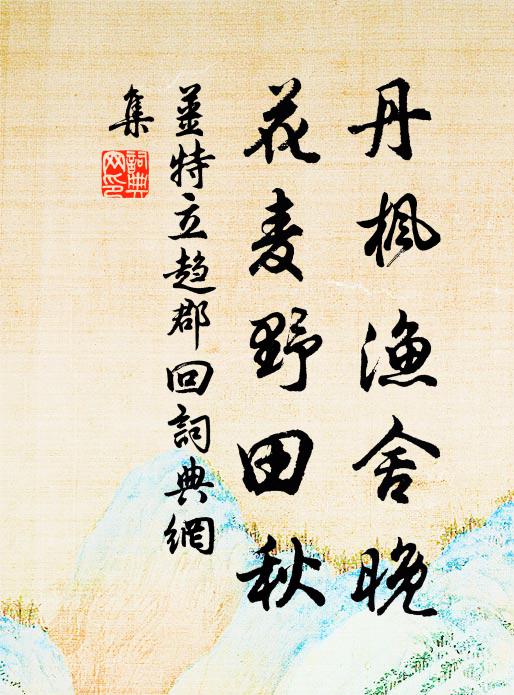 丹枫渔舍晚
花麦野田秋
姜特立趋郡回詞典網
集
詞典網印